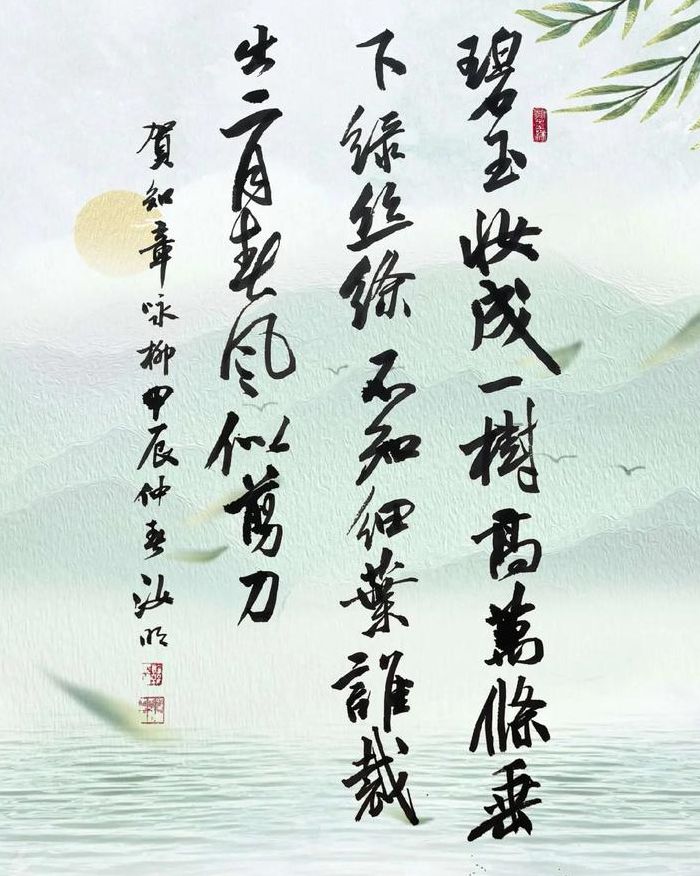 碧玉妝成一樹高萬條垂
下綠絲絛不知細葉誰裁
出二月春风似剪刀
賀知章咏柳甲辰仲春汝明